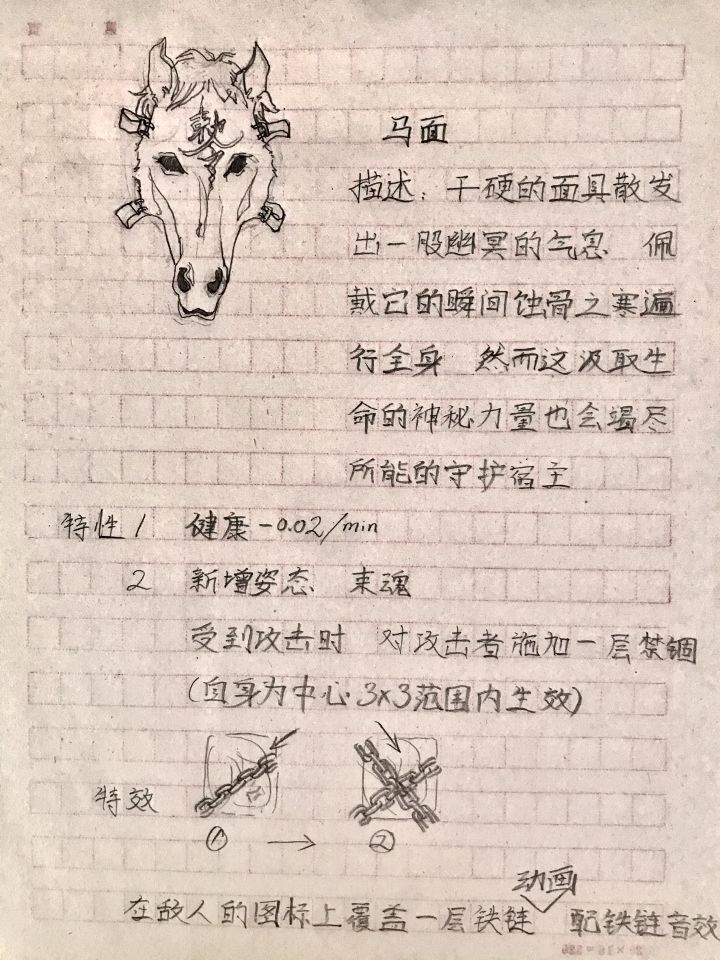 马面
描述：干硬的面具散发
出一股幽冥的气息 佩
戴它的瞬间蚀骨之寒遍
行全身 然而这汲取生
命的神秘力量也会竭尽
所能的守护宿主
特性1 健康-0.02/min
2 新增姿态 束魂
受到攻击时 对攻击者施加一层禁锢
(自身为中心3×3范围内生效)
特效
① → ②
动画
在敌人的图标上覆盖一层铁链 配铁链音效